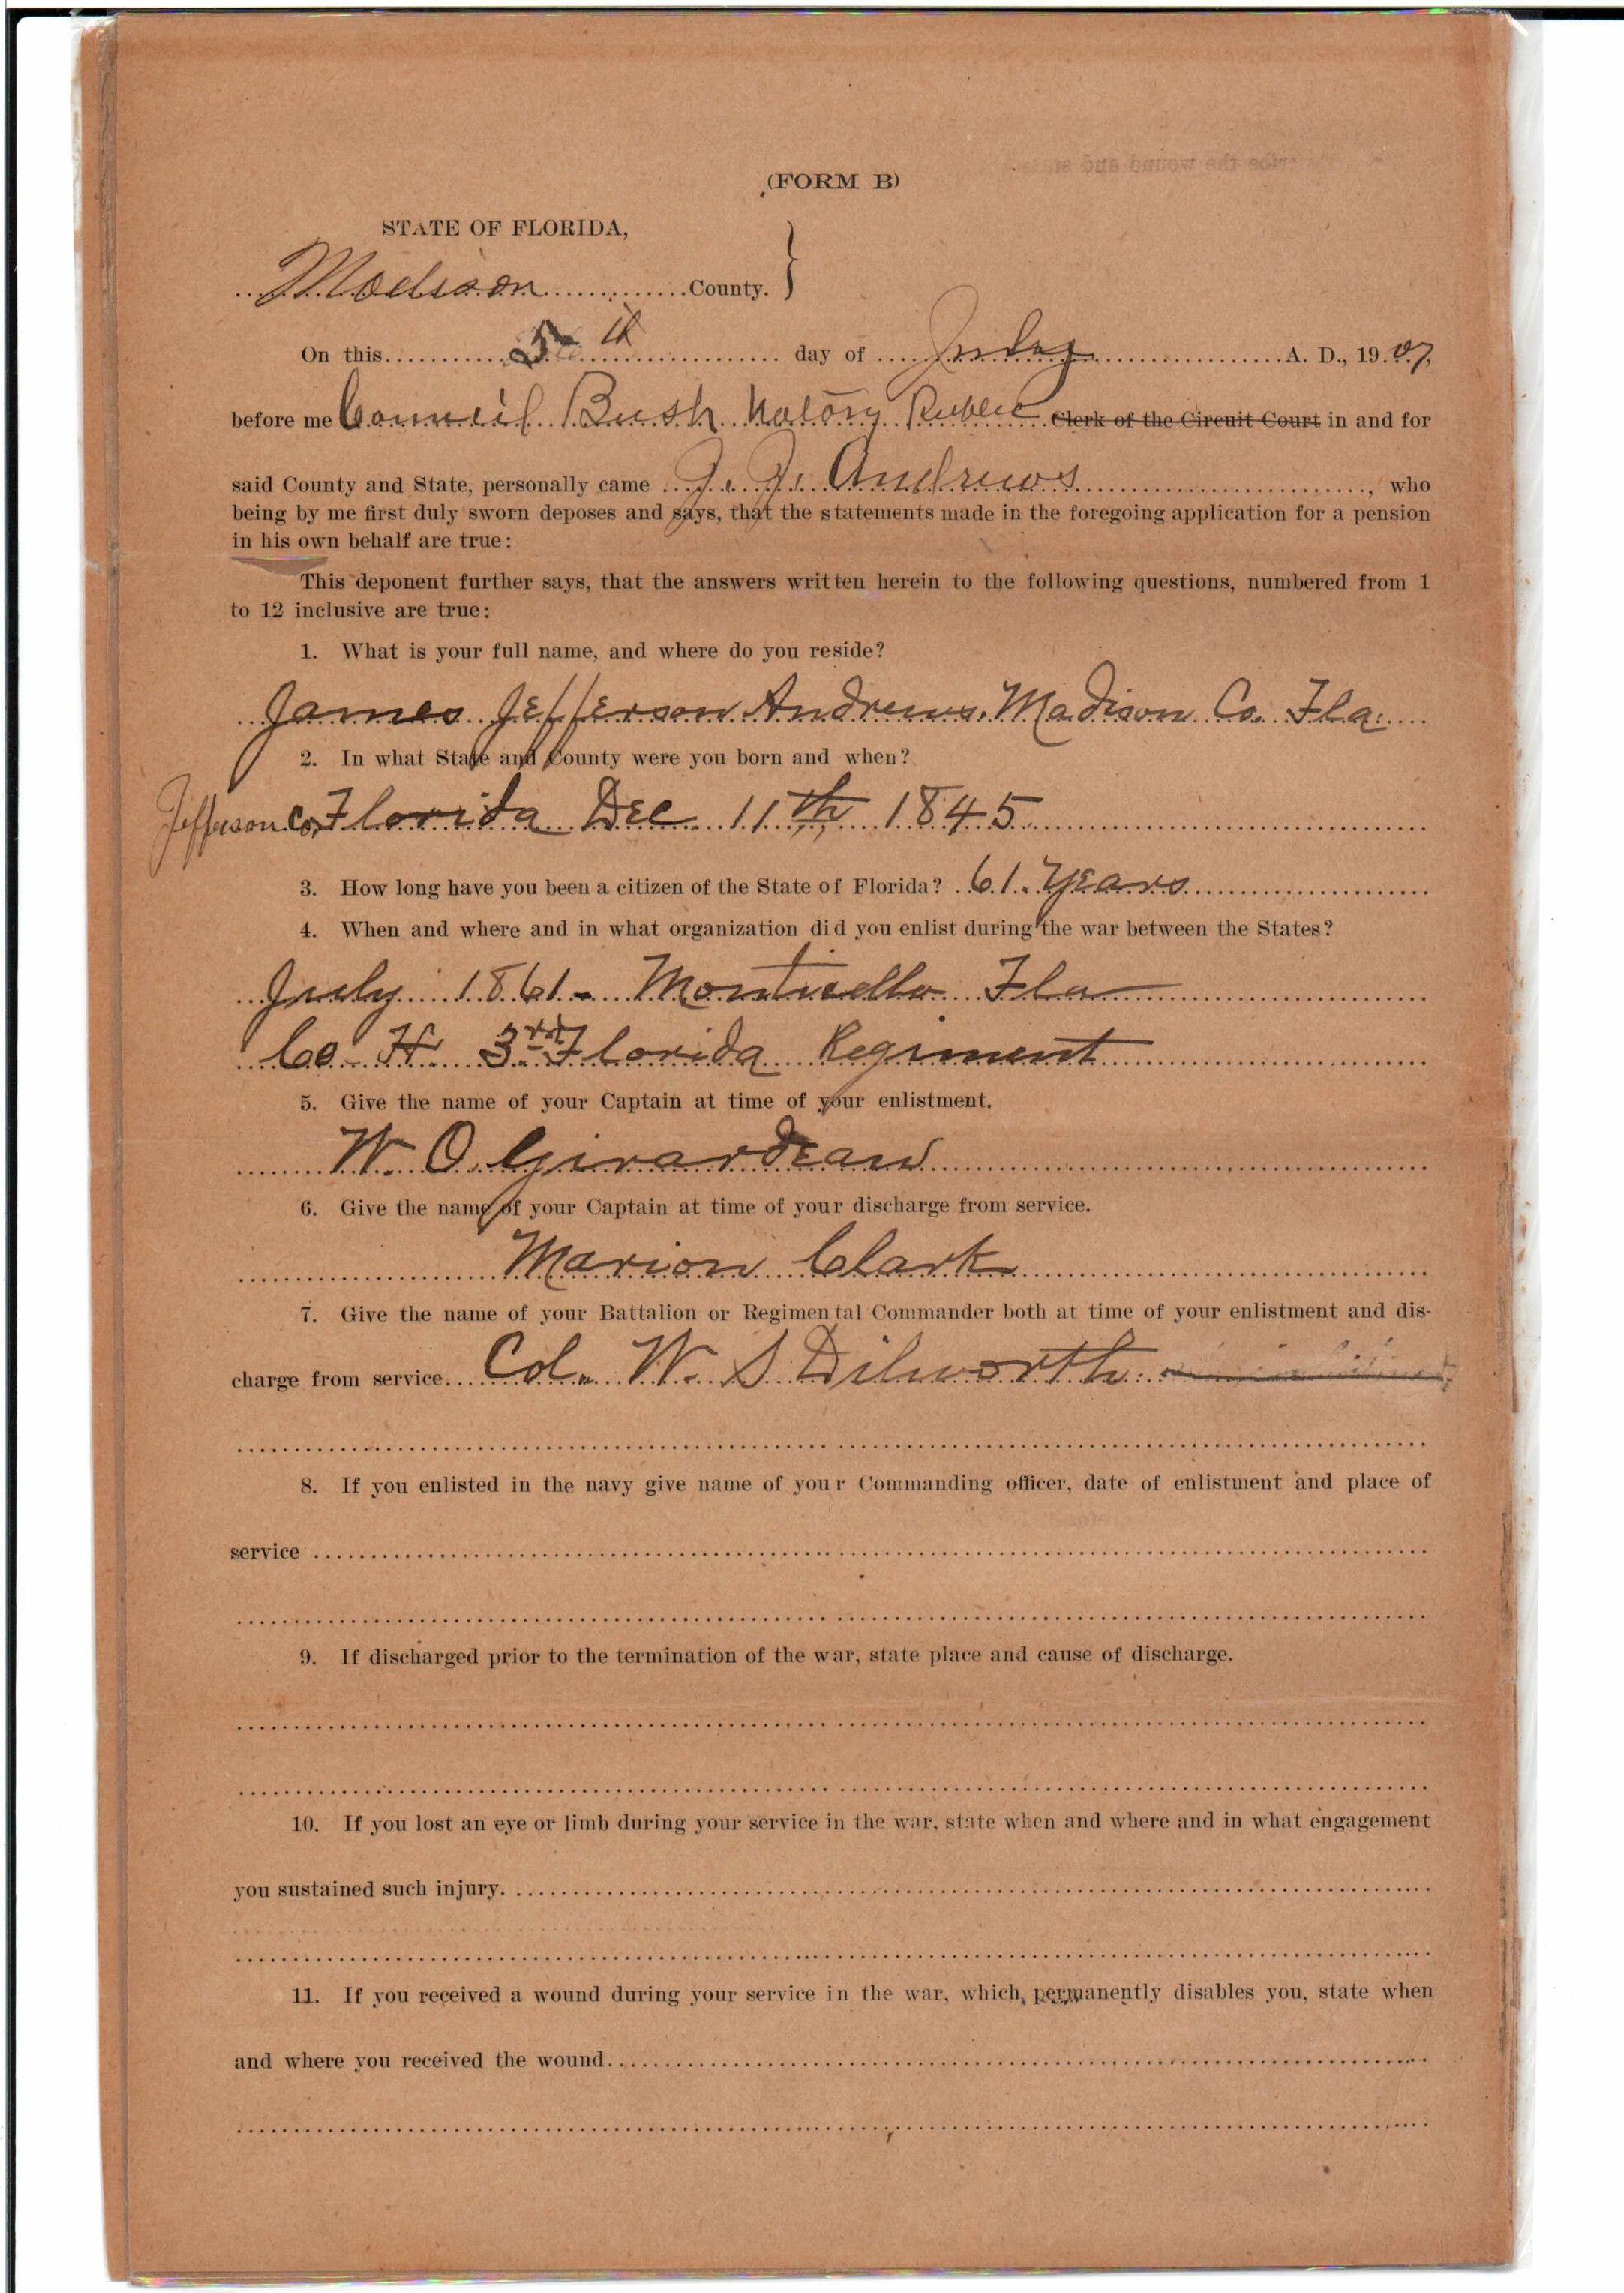 (FORM B)
STATE OF FLORIDA,
Madison County.
On this 5th day of July A. D., 1907,
before me Council Bush Notary Public Clerk of the Circuit Court in and for
said County and State, personally came J. J. Andrews, who
being by me first duly sworn deposes and says, that the statements made in the foregoing application for a pension
in his own behalf are true:
This deponent further says, that the answers written herein to the following questions, numbered from 1
to 12 inclusive are true:
1. What is your full name, and where do you reside?
James Jefferson Andrews. Madison Co. Fla.
2. In what State and County were you born and when?
Jefferson Co, Florida Dec 11th 1845
3. How long have you been a citizen of the State of Florida? 61. Years
4. When and where and in what organization did you enlist during the war between the States?
July 1861 - Monticello Fla
Co. H. 3rd Florida Regiment
5. Give the name of your Captain at time of your enlistment.
W. O. Girardeau
6. Give the name of your Captain at time of your discharge from service.
Marion Clark
7. Give the name of your Battalion or Regimental Commander both at time of your enlistment and dis-
charge from service. Col. W. S. Dilworth.
8. If you enlisted in the navy give name of your Commanding officer, date of enlistment and place of
service
9. If discharged prior to the termination of the war, state place and cause of discharge.
10. If you lost an eye or limb during your service in the war, state when and where and in what engagement
you sustained such injury.
11. If you received a wound during your service in the war, which, permanently disables you, state when
and where you received the wound.